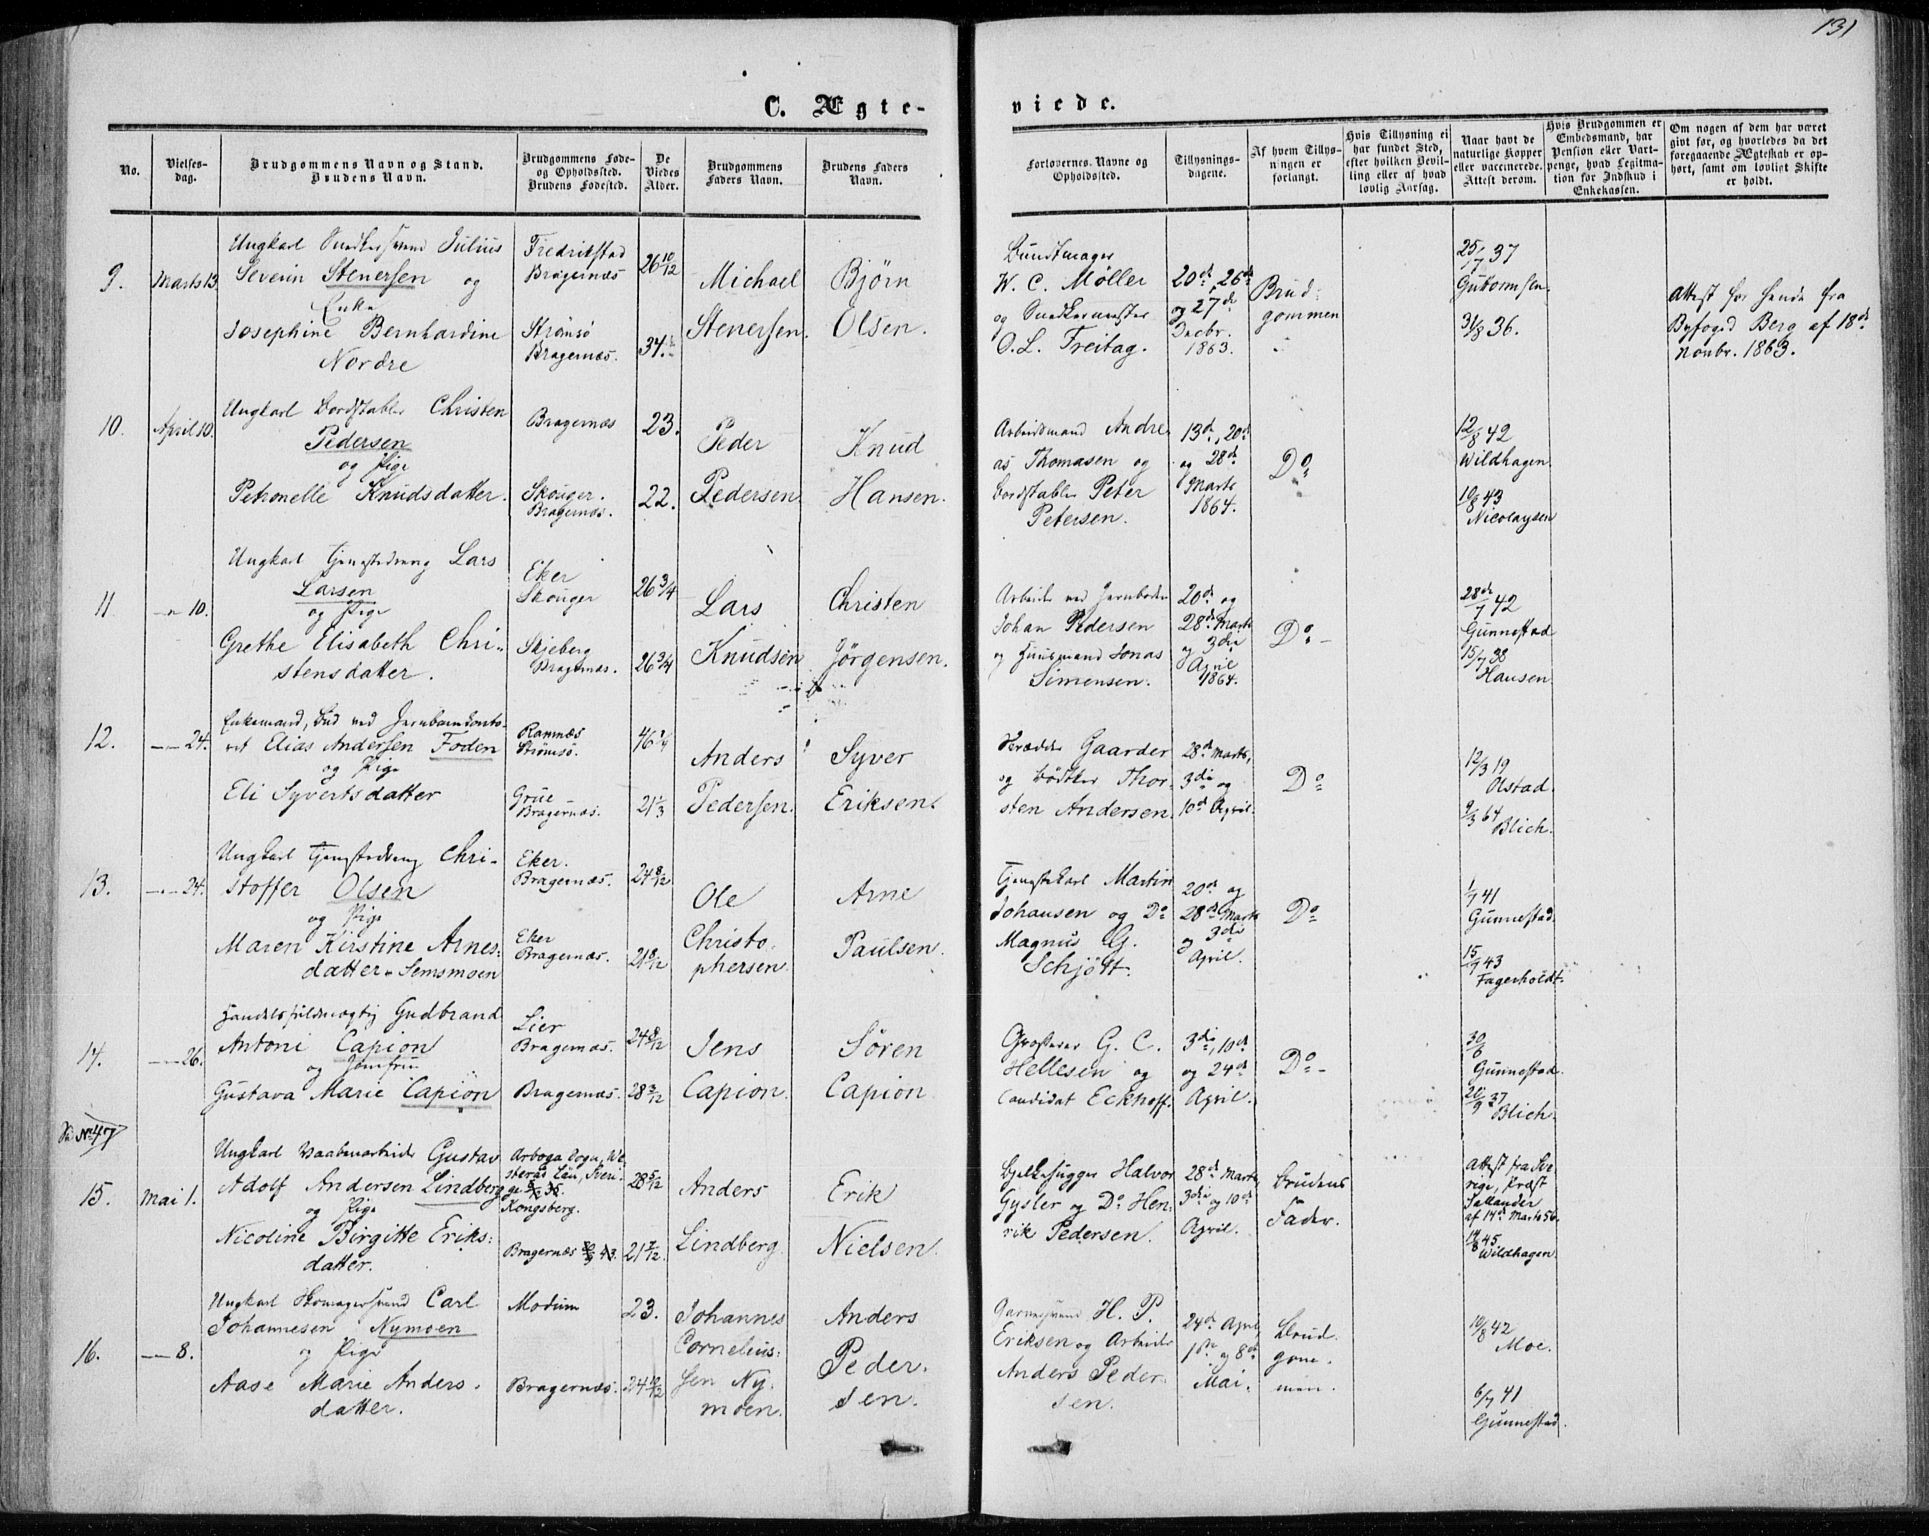 131
C. Ægte-
viede.
No.
Vielses-
dag.
Brudgommens Navn og Stand.
Brudens Navn.
Brudgommens Føde-
og Opholdssted.
Brudens Fødested.
De
Viedes
Alder.
Brudgommens
Faders Navn.
Brudens Faders
Navn.
Forlovernes Navne og
Opholdssted.
Tillysnings-
dagene.
Af hvem Tillys-
ningen er
forlangt.
Hvis Tillysning ei
har fundet Sted,
efter hvilken Bevil-
ling eller af hvad
lovlig Aarsag.
Naar havt de
naturlige Kopper
eller vaccinerede.
Attest derom.
Hvis Brudgommen er
Embedsmand, har
Pension eller Vart-
penge, hvad Legitma-
tion for Indskud i
Enkekassen.
Om nogen af dem har været
givt før, og hvorledes da det
foregaaende Ægteskab er op-
hørt, samt om lovligt Skifte
er holdt.
9.
Marts 13.
Ungkarl Snedkersvend Julius
Severin Stenersen og
Enke
Josephine Bernhardine
Nordre
Fredrikstad
Bragernæs
Strømsø
Bragernæs.
26 10/12
34
Michael
Stenersen.
Bjørn
Olsen.
Bundtmager
W. C. Møller
og Snedkermester
O. L. Freitag.
20de, 26de
og 27de
Decbr.
1863.
Brud-
gommen
25/7 37
Guttormsen
31/8 36.
Attest for hende fra
Byfoged Berg af 18de
Novbr. 1863.
10.
April 10.
Ungkarl Bordstabler Christen
Pedersen
og Pige
Petronelle Knudsdatter.
Bragernæs
Skouger.
Bragernæs.
23.
22.
Peder
Pedersen
Knud
Hansen.
Arbeidsmand Andre-
as Thomasen og
Bordstabler Peter
Petersen.
13de, 20de
og 28de
Marts
1864.
Do
12/8 42
Wildhagen
10/8 43
Nicolaysen
11.
-"- 10.
Ungkarl Tjenestedreng Lars
Larsen
og Pige
Grethe Elisabeth Chri-
stensdatter.
Eker
Skouger
Skjeberg
Bragernæs.
26 3/4
26 3/4
Lars
Knudsen
Christen
Jörgensen.
Arbeider ved Jernbanen
Johan Pedersen
og Huusmand Jonas
Simensen.
20de og
28de Marts
og 3die
April
1864.
Do-
28de/7 42
Gunnestad
15/7 38
Hansen
12.
-"- 24.
Enkemand, Bud ved Jernbanekonto-
ret Elias Andersen Foden
og Pige
Eli Syvertsdatter
Ramnæs
Strømsø.
Grue
Bragernæs.
46 1/4
21 1/3
Anders
Pedersen.
Syver
Eriksen.
Skrædder Gaarder
og Bødker Thor-
sten Andersen.
28de Marts,
3die og
10de April.
Do
12/3 19
Ustad.
9/3 64
Blich.
13.
-"- 24.
Ungkarl Tjenestedreng Chri-
stoffer Olsen
og Pige
Maren Kirstine Arnes-
datter Semsmoen
Eker.
Bragernæs.
Eker
Bragernæs.
24 8/12
21 8/12
Ole
Christo-
phersen.
Arne
Paulsen.
Tjenestekarl Martin
Johansen og Do
Magnus G.
Schjött.
20de og
28de Marts
og 3die
April.
Do
1/7 41
Gunnestad
15/9 43
Fagerholdt.
14.
-"- 26.
Handelsfuldmægtig Gudbrand
Antoni Capion
og Jomfru
Gustava Marie Capion
Lier
Bragernæs.
Bragernæs.
24 8/12
28 3/12
Jens
Capion.
Søren
Capion.
Grosserer G. C.
Hellesen og
Candidat Eckhoff.
3die, 10de
og 24de
April.
Do-
30/6
Gunnestad
20/9 37
Blich.
No 47
15.
Mai 1.
Ungkarl Vaabenarbeider Gustav
Adolf Andersen Lindberg
og Pige
Nicoline Birgitte Eriks-
datter.
Arboga Sogn, We-
sterås Län, Sveri-
ge 35.
Kongsberg.
Bragernæs 43
28 5/12
21 7/12
Anders
Lindberg.
Erik
Nielsen.
Bjelkehugger Halvor
Gysler og Do Hen-
rik Pedersen.
28de Marts
3die og 10de
April.
Brudens
Fader.
Attest fra Sve-
rige, Præst
Sallander
af 14de Marts 56.
14/8 45
Wildhagen
16.
-"- 8.
Ungkarl Skomagersvend Carl
Johannesen Nymoen
og Pige
Aase Marie Anders-
datter.
Modum
Bragernæs.
23.
24 10/12
Johannes
Cornelius-
sen Ny-
moen.
Anders
Peder-
sen.
Garversvend H. P.
Eriksen og Arbeider
Anders Peder-
sen.
24de April
1ste og 8de
Mai.
Brud-
gom-
men.
19/8 42
Moe.
6/7 41
Gunnestad.